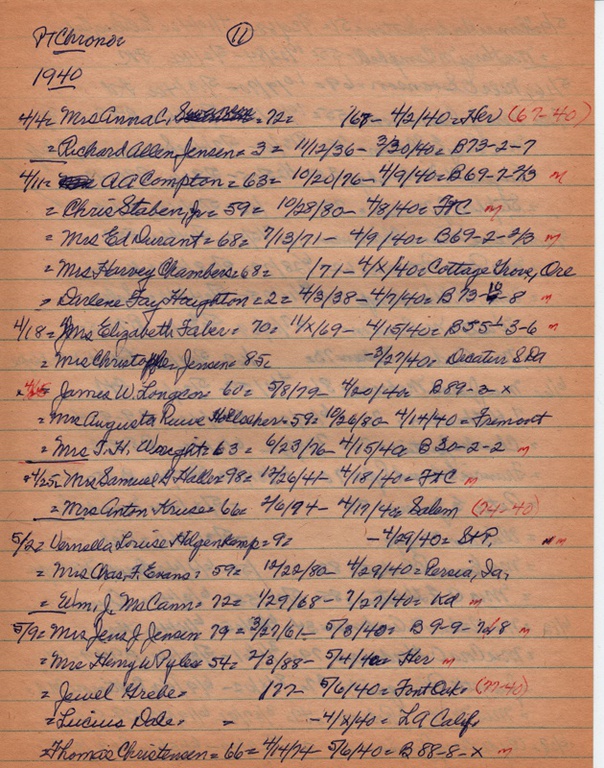 Pt Chronor (11)
1940
4/4= Mrs Anna C, = 72= /68- 4/2/40= Her (67-40)
= Richard Allen Jensen= 3= 11/12/36- 3/30/40= B73-2-7
4/11= AA Compton= 63= 10/20/76- 4/9/40= B69-7-2/3 m
= Chris Staben, Jr= 59= 10/28/80- 4/8/40= FtC m
= Mrs Ed Durant= 68= 7/13/71- 4/9/40= B69-2-2/3 m
= Mrs Harvey Chambers= 68= /71- 4/x/40= Cottage Grove, Ore
= Darlene Fay Houghton= 2= 4/3/38- 4/7/40= B73- -8 m
4/18= Mrs Elizabeth Faber= 70= 11/x/69- 4/15/40= B55 1/2 3-6 m
= Mrs Christoffer Jensen= 85= -3/27/40= Decatur S Da
x 4/25 James W. Longcor= 60= 5/8/79- 4/20/40= B89-3-x
= Mrs Augusta = 59= 10/26/80- 4/14/40= Fremont
= Mrs T. H. Wright= 63= 6/23/76- 4/15/40 B30-2-2 m
4/25= Mrs Samuel G Haller= 98= 12/26/41- 4/18/40= FtC m
= Mrs Anton Kruse= 66= 2/6/74- 4/17/40= Salem (74-40)
5/2= Vernella Louise Hilgenkamp= 9= -4/29/40= St P. m
= Mrs Chas, F. Evans= 59= 12/22/80- 4/29/40= Persia, Ia,
= Wm, J. McCann= 72= 1/29/68- 7/27/40= Kd m
5/9= Mrs Jens J. Jensen 79= 3/27/61- 5/3/40= B9-9-7&8 m
= Mrs Henry W Pyle= 54= 2/3/88- 5/4/40= Her m
= Jewel Grebe= /77- 5/6/40= Font Oak= (77-40)
= Lucius Dale= = -4/x/40= LA Calif,
= Thomas Christensen= 66= 4/14/74- 5/6/40= B88-8-x m